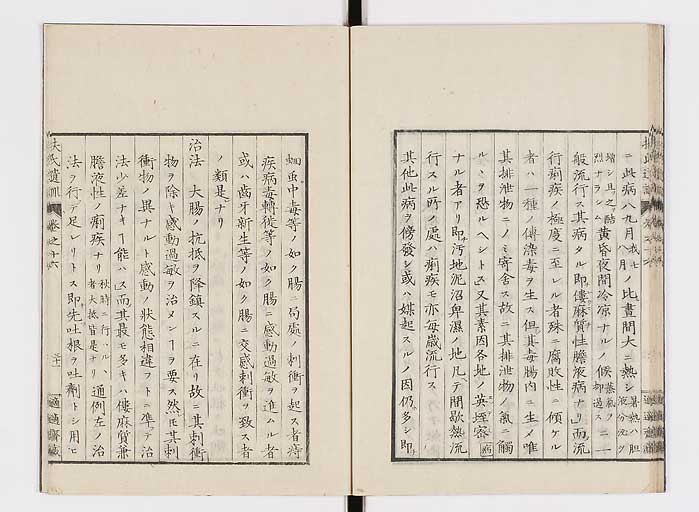 ニ此病八九月我七八月ノ比晝間大ニ熱シ暑熱ハ胆液分泌ヲ
増シ且之ヲ酷烈ナラシム黄昏夜間冷凉ナルノ候蒸氣ヲ却過スニ一
般流行ス其病タル即僂麻質性膽液病ナリ而流
行痢疾ノ極度ニ至レル者殊ニ腐敗性ニ傾ケル
者ハ一種ノ傳染毒ヲ生ス但其毒腸内ニ生メ唯
其排泄物ニノミ寄舍ス故ニ其排泄物ノ氣ニ觸
ルヽヲ恐ルヘシトス又其素因各地ノ英埵密病
ナル者アリ即汚地泥沼卑濕ノ地凡テ間歇熱流
行スル所ノ處ハ痢疾モ亦毎歳流行ス
其他此病ヲ傍發シ或ハ媒起スルノ因仍多シ即
蛔虫中毒等ノ如ク腸ニ局處ノ刺衝ヲ起ス者痔
疾病毒轉徙等ノ如ク腸ニ感動過敏ヲ進ムル者
或ハ齒牙新生等ノ如ク腸ニ交感刺衝ヲ致ス者
ノ類是ナリ
治法 大腸ノ抗抵ヲ降鎮スルニ在リ故ニ其刺衝
物ヲ除キ感動過敏ヲ治メンヿヲ要ス然モ其刺
衝物ノ異ナルト感動ノ狀態相違フトニ準テ治
法少差ナキヿ能ハス而其最モ多キハ僂麻質兼
膽液性ノ痢疾ナリ秋時ニ行ハルヽ者大抵皆是ナリ通例左ノ治
法ヲ行テ足レリトス即先吐根ヲ吐劑トシ用ヒ
扶氏遺訓 卷之十六
適適齋藏